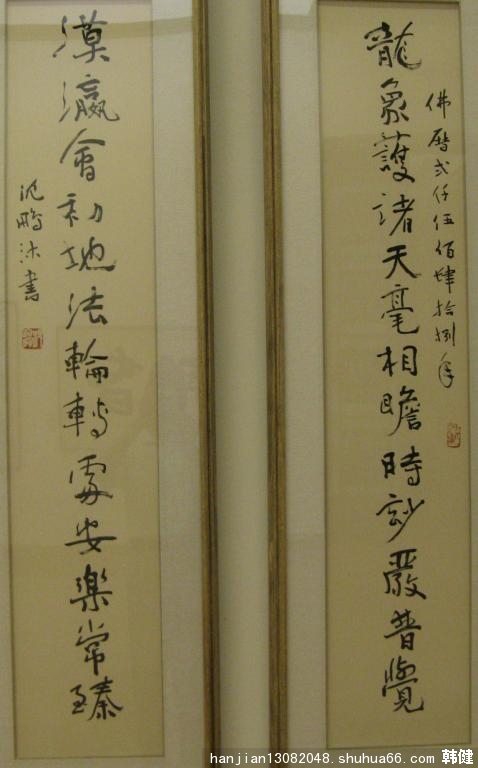 佛曆弍仟伍佰肆拾捌年
龍象護諸天毫相瞻時玅嚴普覺
瀛會初地法輪轉處安樂常臻
沈鵬沐書
hanjian13082048.shuhua66.com 韩健